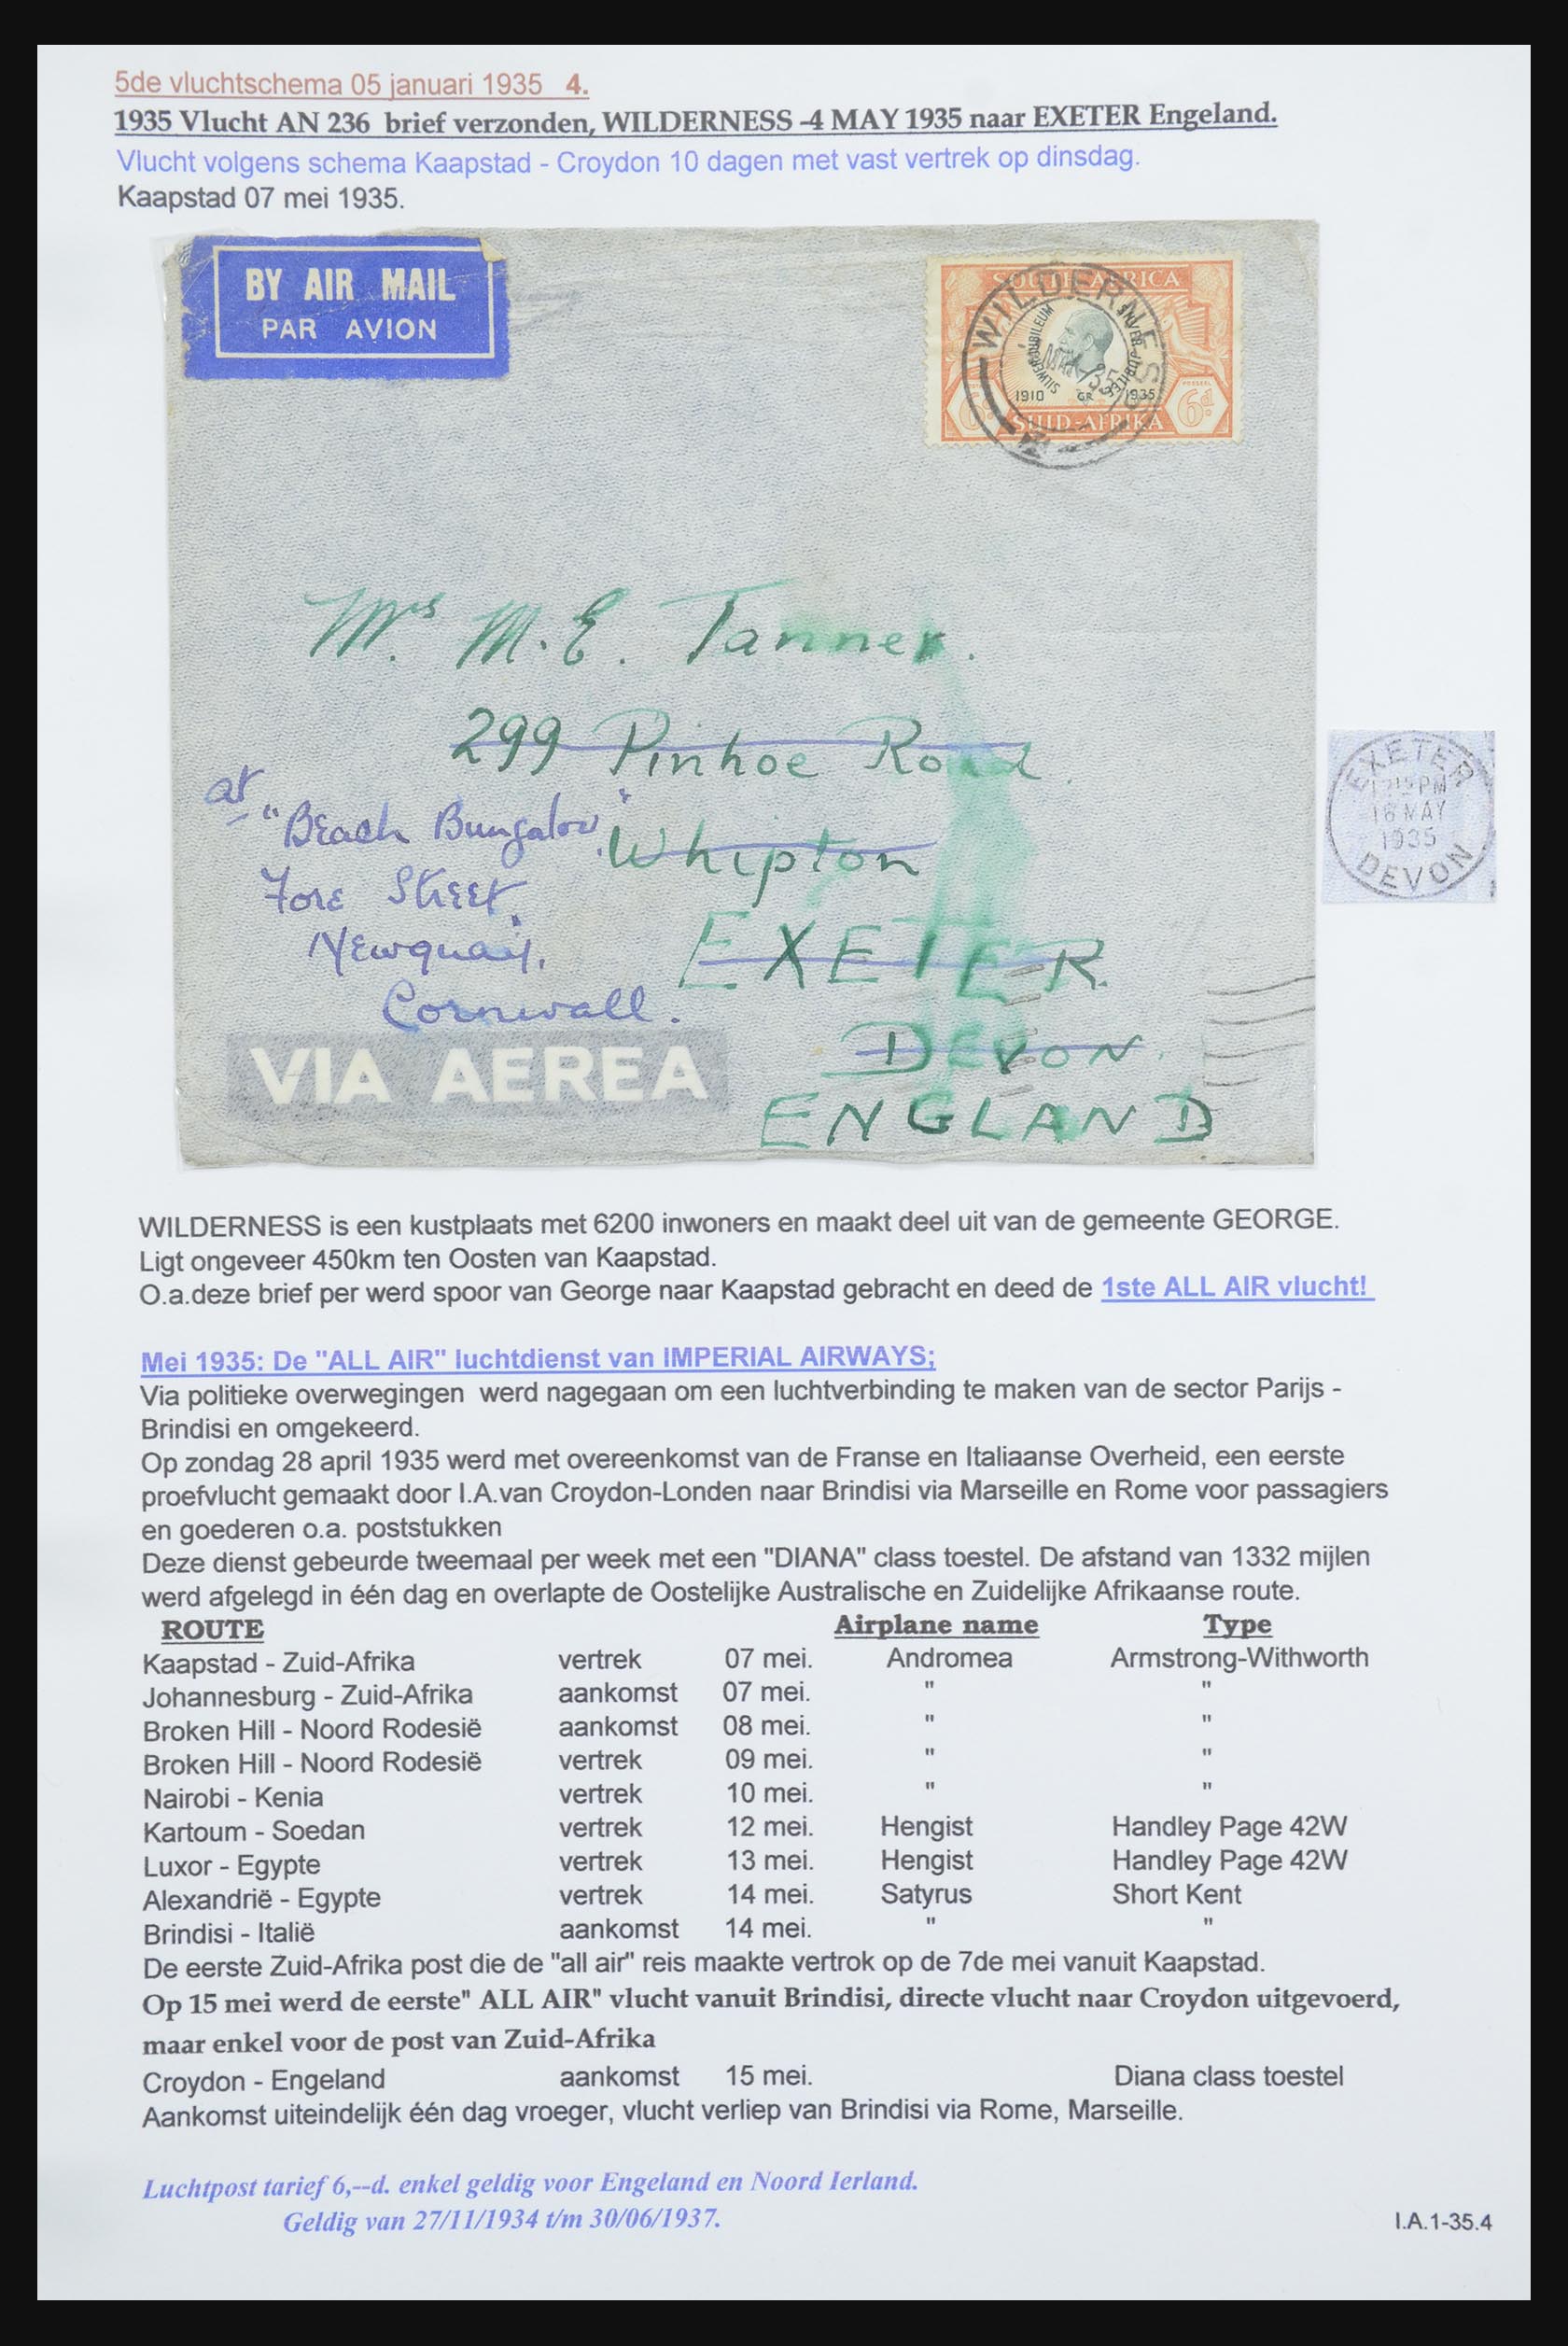 5de vluchtschema 05 januari 1935 4.
1935 Vlucht AN 236 brief verzonden, WILDERNESS -4 MAY 1935 naar EXETER Engeland.
Vlucht volgens schema Kaapstad - Croydon 10 dagen met vast vertrek op dinsdag.
Kaapstad 07 mei 1935.
BY AIR MAIL
PAR AVION
SOUTH AFRICA
WILDERNESS
SILWER JUBILEUM
SILVER JUBILEE
MAY 35
1910 GR 1935
POSSEËL
6d
6d
SUID-AFRIKA
Mrs. M. E. Tanner.
299 Pinhoe Road.
at "Beach Bungalow"
Whipton
Fore Street,
EXETER.
Newquay,
Cornwall.
DEVON.
VIA AEREA
ENGLAND
EXETER
1215 PM
16 MAY
1935
DEVON
WILDERNESS is een kustplaats met 6200 inwoners en maakt deel uit van de gemeente GEORGE.
Ligt ongeveer 450km ten Oosten van Kaapstad.
O.a.deze brief per werd spoor van George naar Kaapstad gebracht en deed de 1ste ALL AIR vlucht!
Mei 1935: De "ALL AIR" luchtdienst van IMPERIAL AIRWAYS;
Via politieke overwegingen werd nagegaan om een luchtverbinding te maken van de sector Parijs -
Brindisi en omgekeerd.
Op zondag 28 april 1935 werd met overeenkomst van de Franse en Italiaanse Overheid, een eerste
proefvlucht gemaakt door I.A.van Croydon-Londen naar Brindisi via Marseille en Rome voor passagiers
en goederen o.a. poststukken
Deze dienst gebeurde tweemaal per week met een "DIANA" class toestel. De afstand van 1332 mijlen
werd afgelegd in één dag en overlapte de Oostelijke Australische en Zuidelijke Afrikaanse route.
ROUTE Airplane name Type
Kaapstad - Zuid-Afrika vertrek 07 mei. Andromea Armstrong-Withworth
Johannesburg - Zuid-Afrika aankomst 07 mei. " "
Broken Hill - Noord Rodesië aankomst 08 mei. " "
Broken Hill - Noord Rodesië vertrek 09 mei. " "
Nairobi - Kenia vertrek 10 mei. " "
Kartoum - Soedan vertrek 12 mei. Hengist Handley Page 42W
Luxor - Egypte vertrek 13 mei. Hengist Handley Page 42W
Alexandrië - Egypte vertrek 14 mei. Satyrus Short Kent
Brindisi - Italië aankomst 14 mei. " "
De eerste Zuid-Afrika post die de "all air" reis maakte vertrok op de 7de mei vanuit Kaapstad.
Op 15 mei werd de eerste" ALL AIR" vlucht vanuit Brindisi, directe vlucht naar Croydon uitgevoerd,
maar enkel voor de post van Zuid-Afrika
Croydon - Engeland aankomst 15 mei. Diana class toestel
Aankomst uiteindelijk één dag vroeger, vlucht verliep van Brindisi via Rome, Marseille.
Luchtpost tarief 6,--d. enkel geldig voor Engeland en Noord Ierland.
Geldig van 27/11/1934 t/m 30/06/1937.
I.A.1-35.4